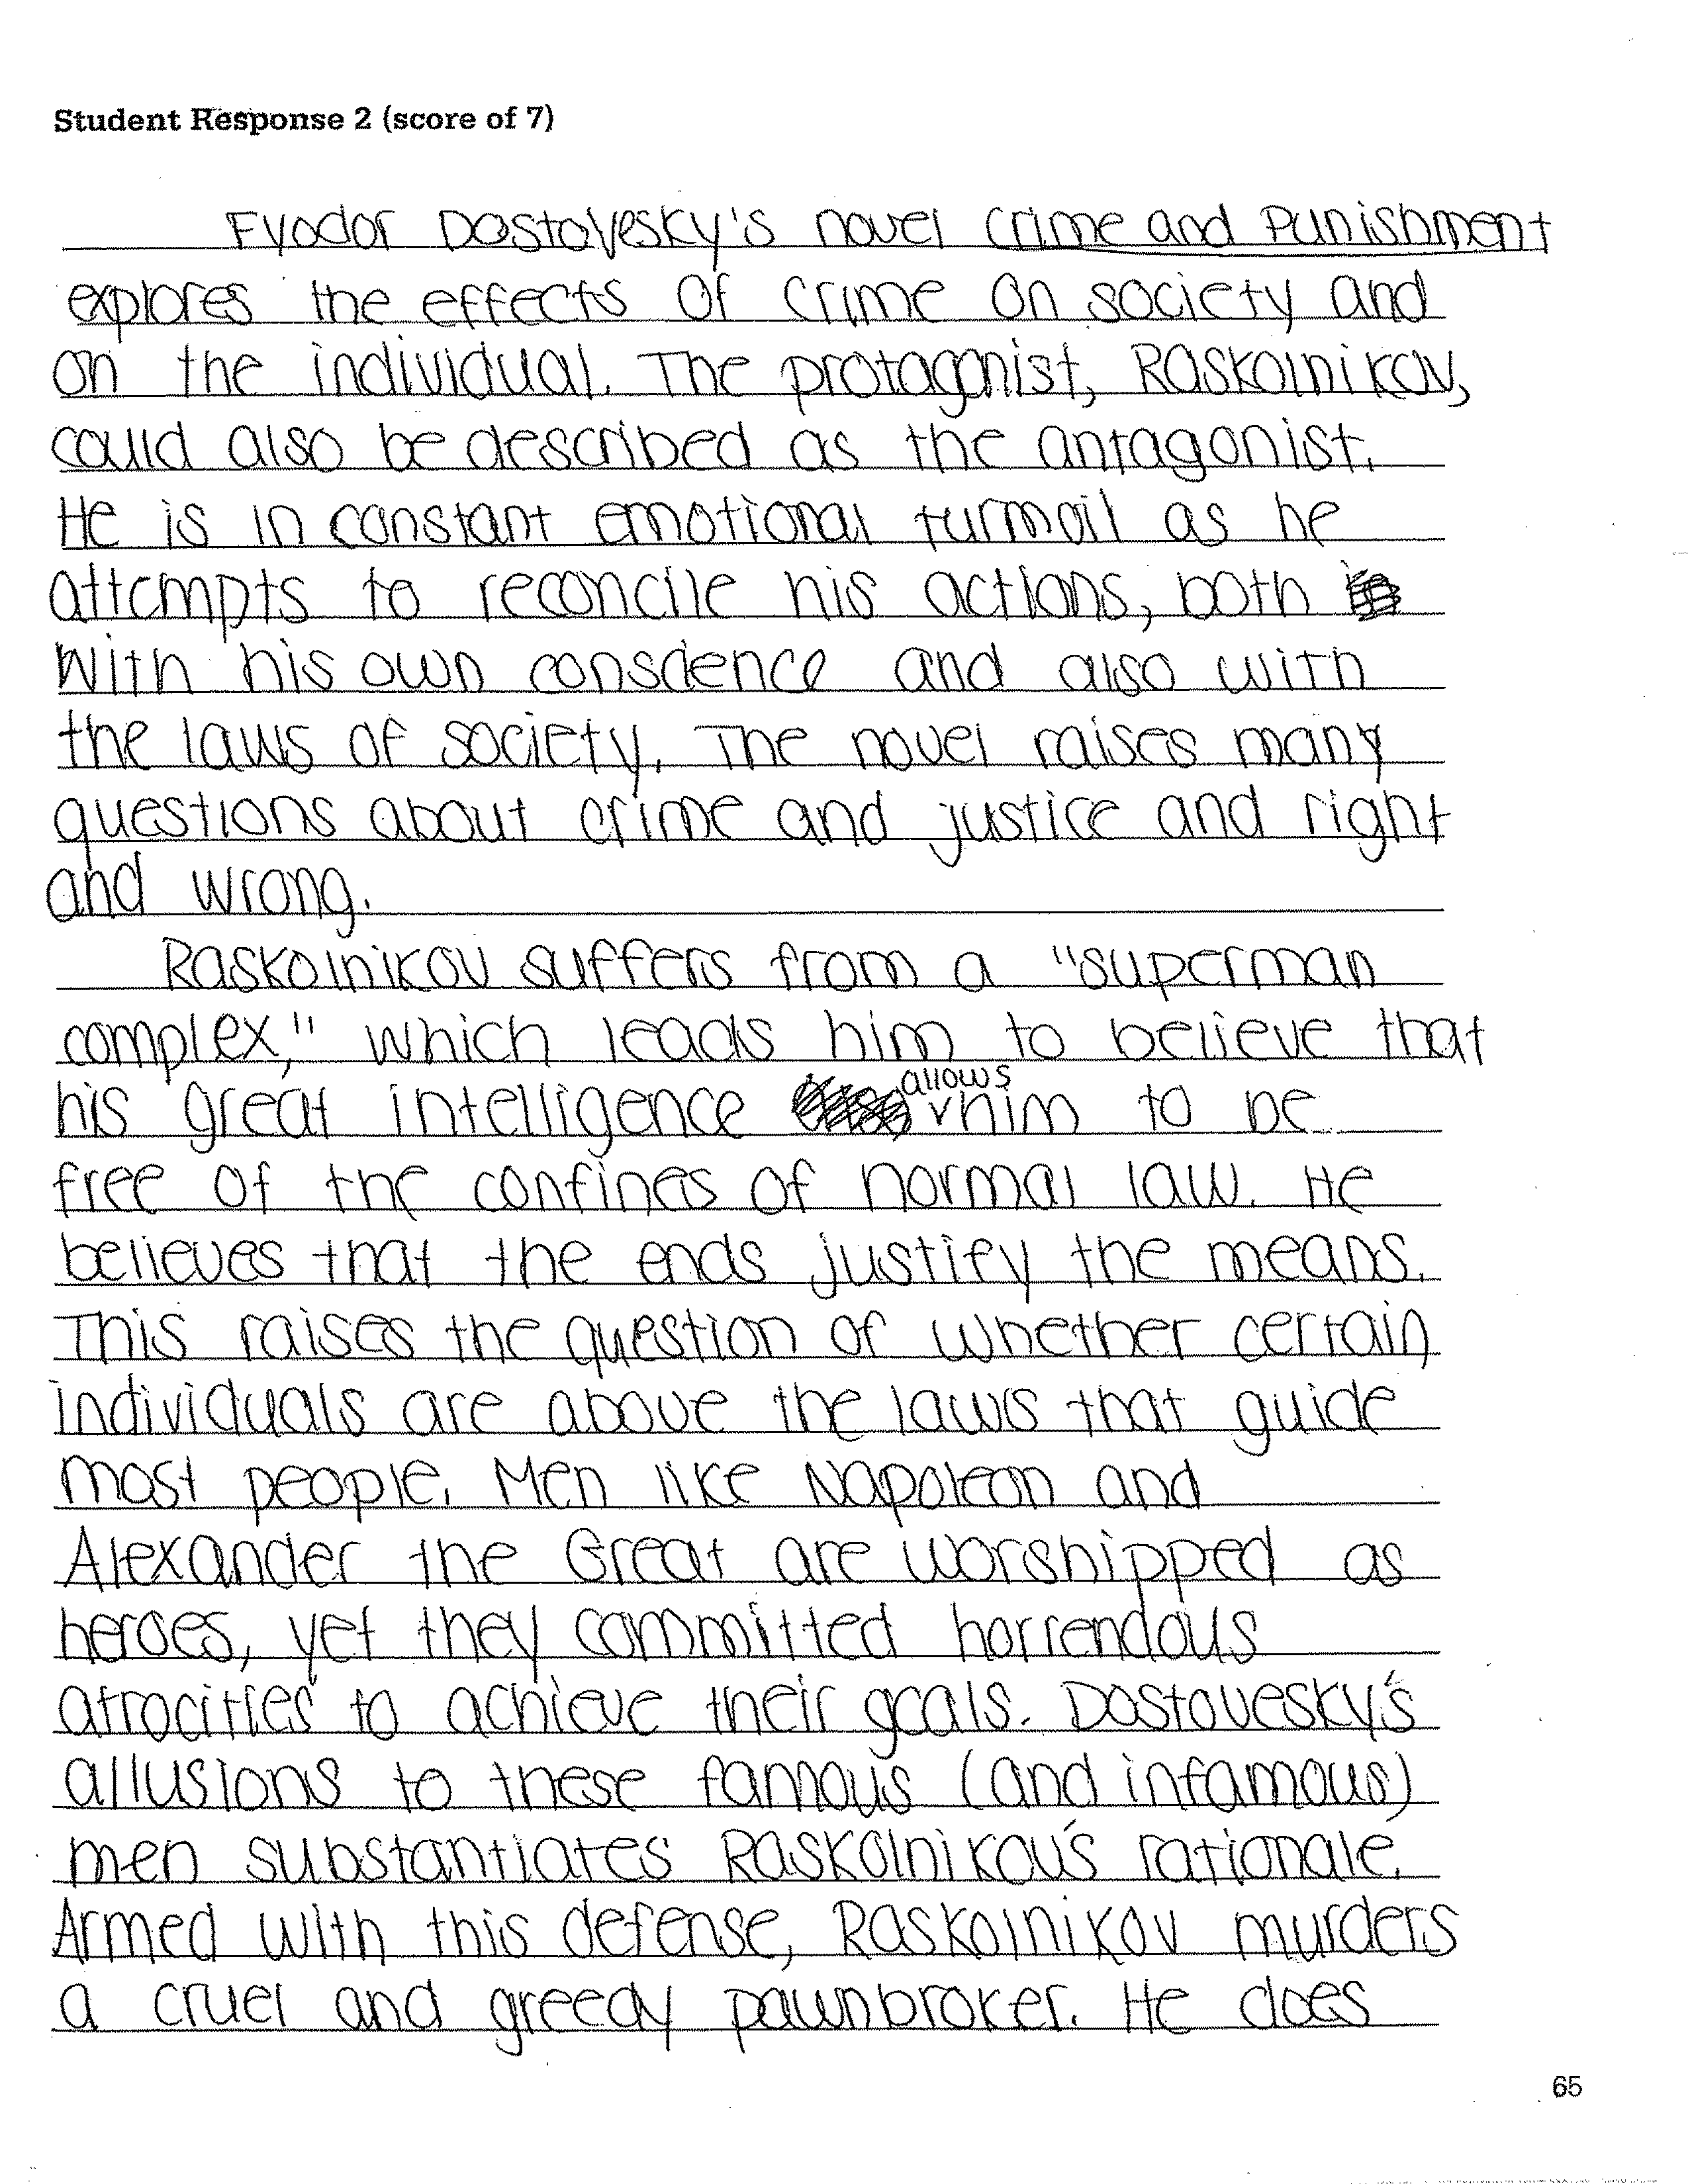 Student Response 2 (score of 7)
Fyodor Dostovesky's novel Crime and Punishment
explores the effects of crime on society and
on the individual. The protagonist, Raskolnikov,
could also be described as the antagonist.
He is in constant emotional turmoil as he
attempts to reconcile his actions, both
with his own conscience and also with
the laws of society. The novel raises many
questions about crime and justice and right
and wrong.
Raskolnikov suffers from a "superman
complex," which leads him to believe that
his great intelligence allows him to be
free of the confines of normal law. He
believes that the ends justify the means.
This raises the question of whether certain
individuals are above the laws that guide
most people. Men like Napoleon and
Alexander the Great are worshipped as
heroes, yet they committed horrendous
atrocities to achieve their goals. Dostovesky's
allusions to these famous (and infamous)
men substantiates Raskolnikov's rationale.
Armed with this defense, Raskolnikov murders
a cruel and greedy pawnbroker. He does
65